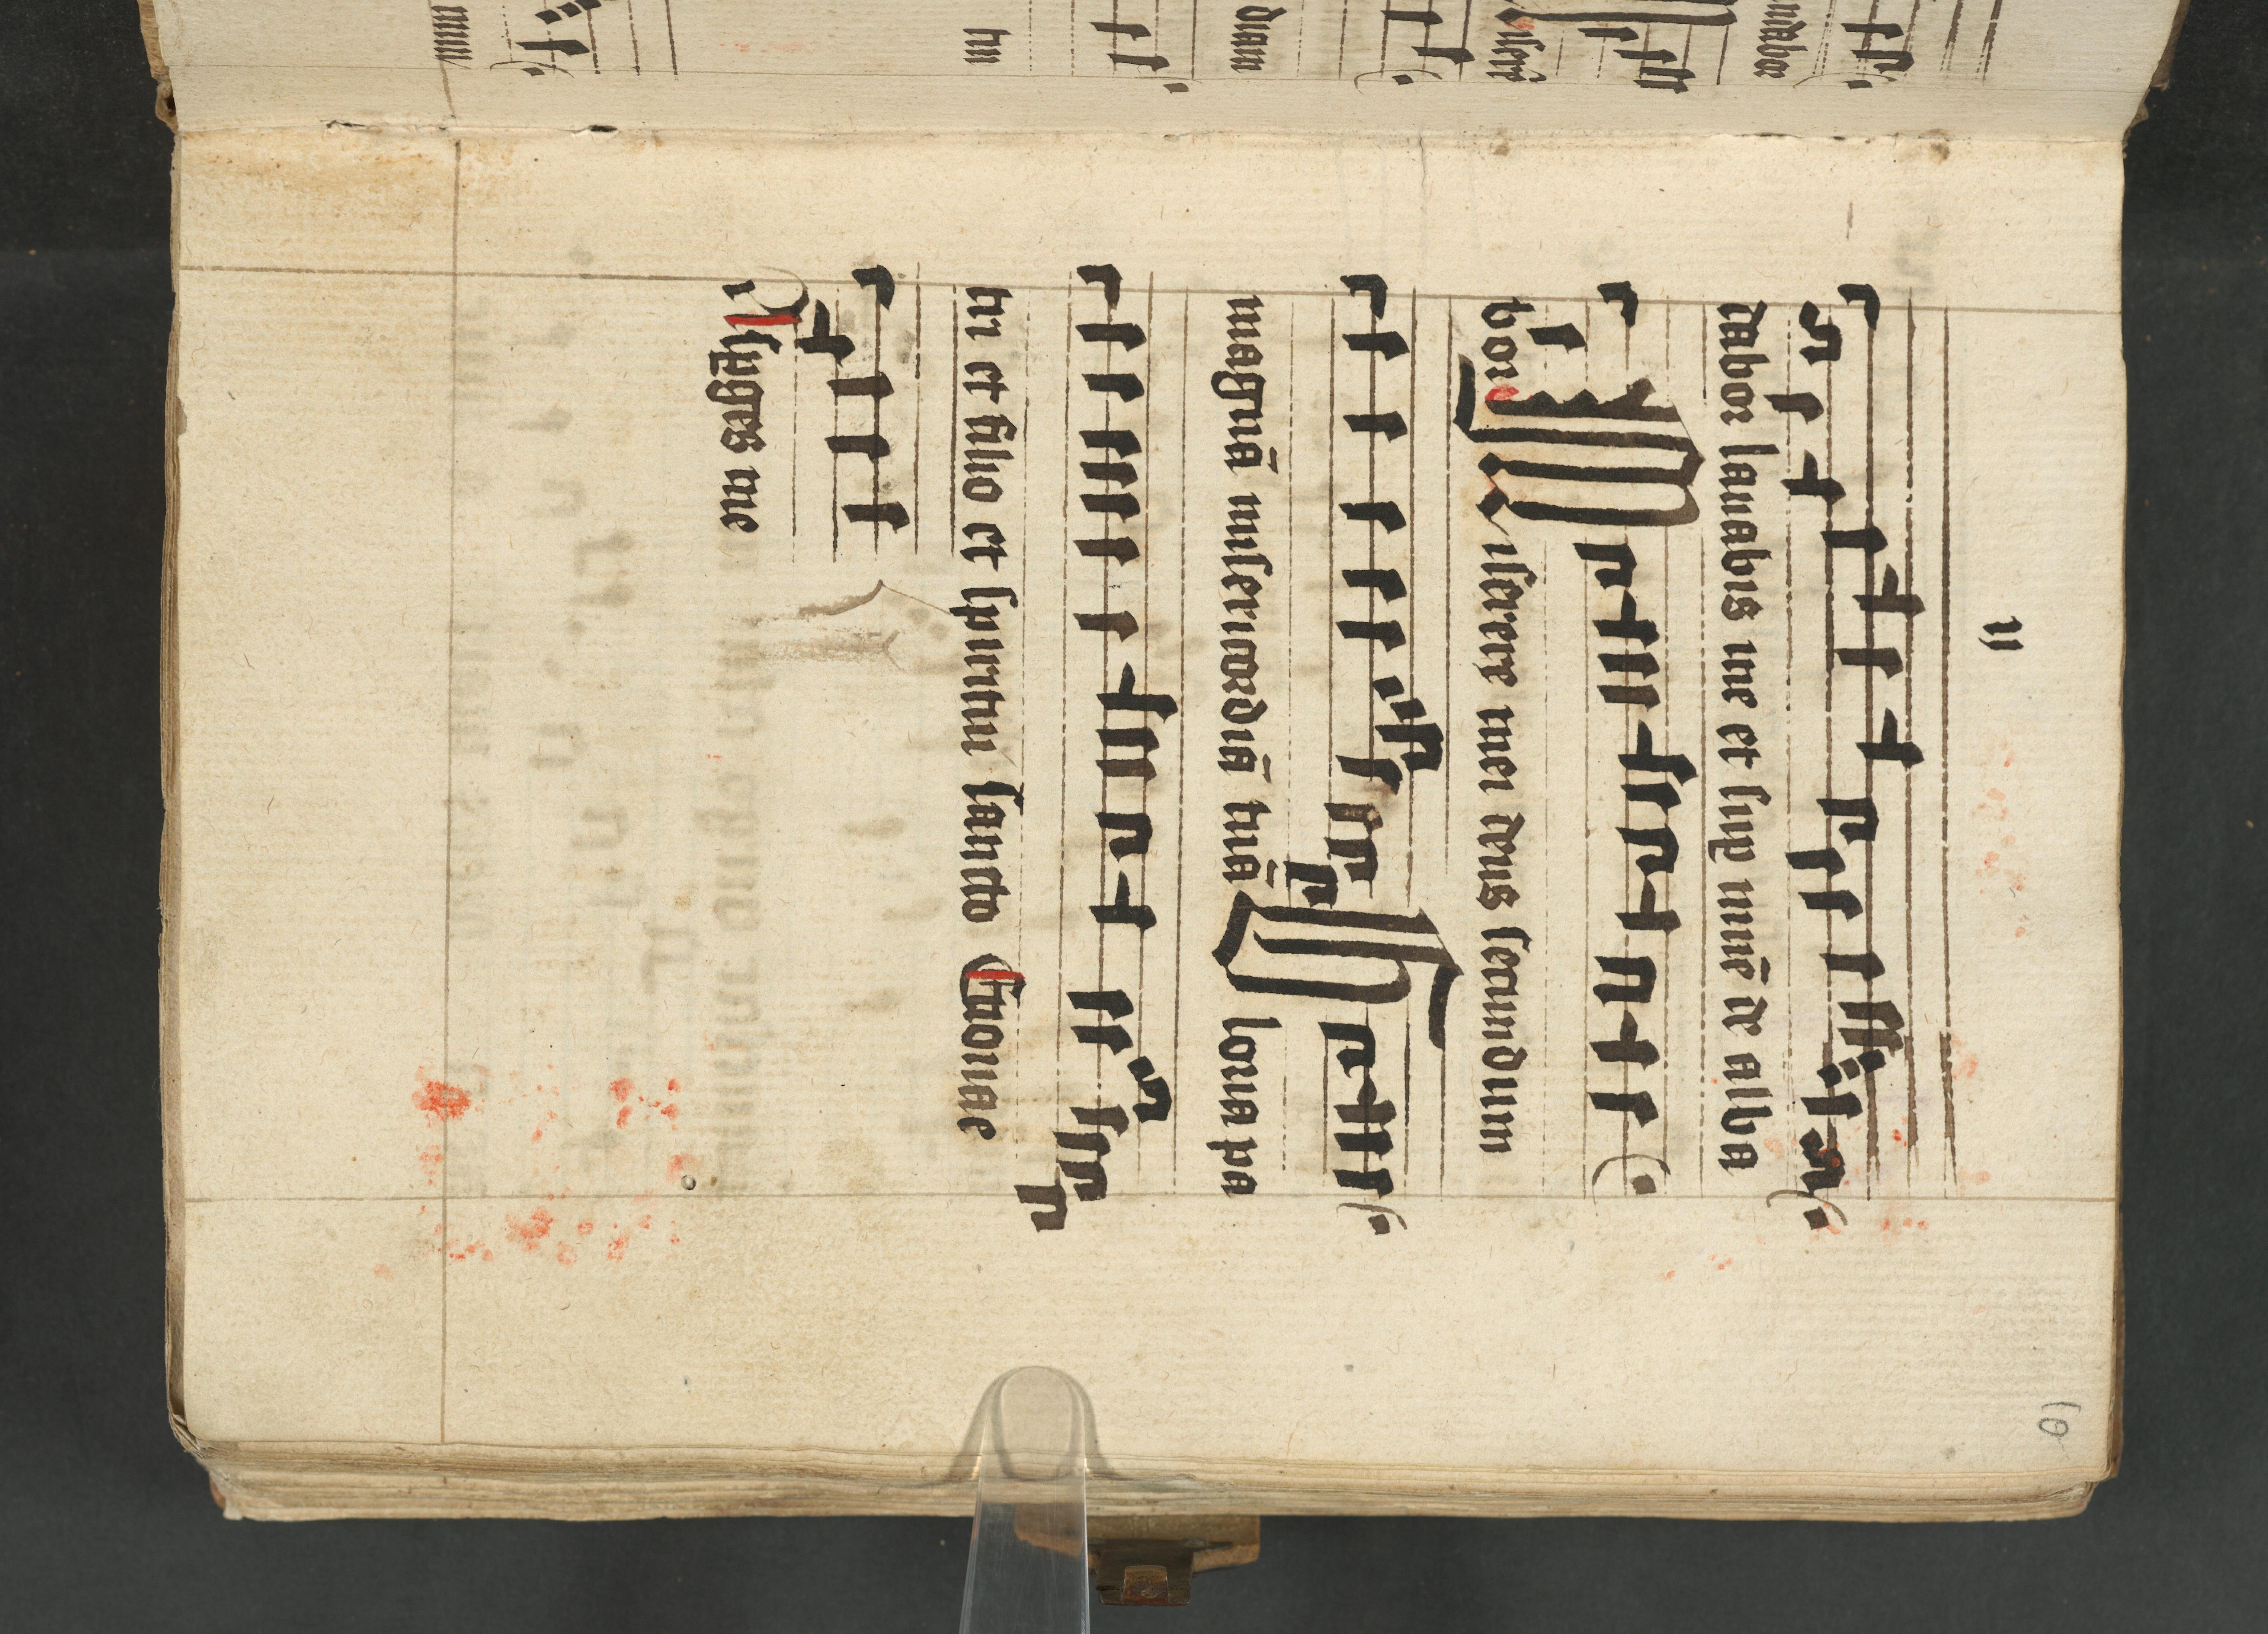 ij
dabor lauabis me et sup niuē de alba
bor Miserere mei deus secundum
magnā misericordiā tuā Gloria pa
tri et filio et spiritui sancto Euouae
Aspges me